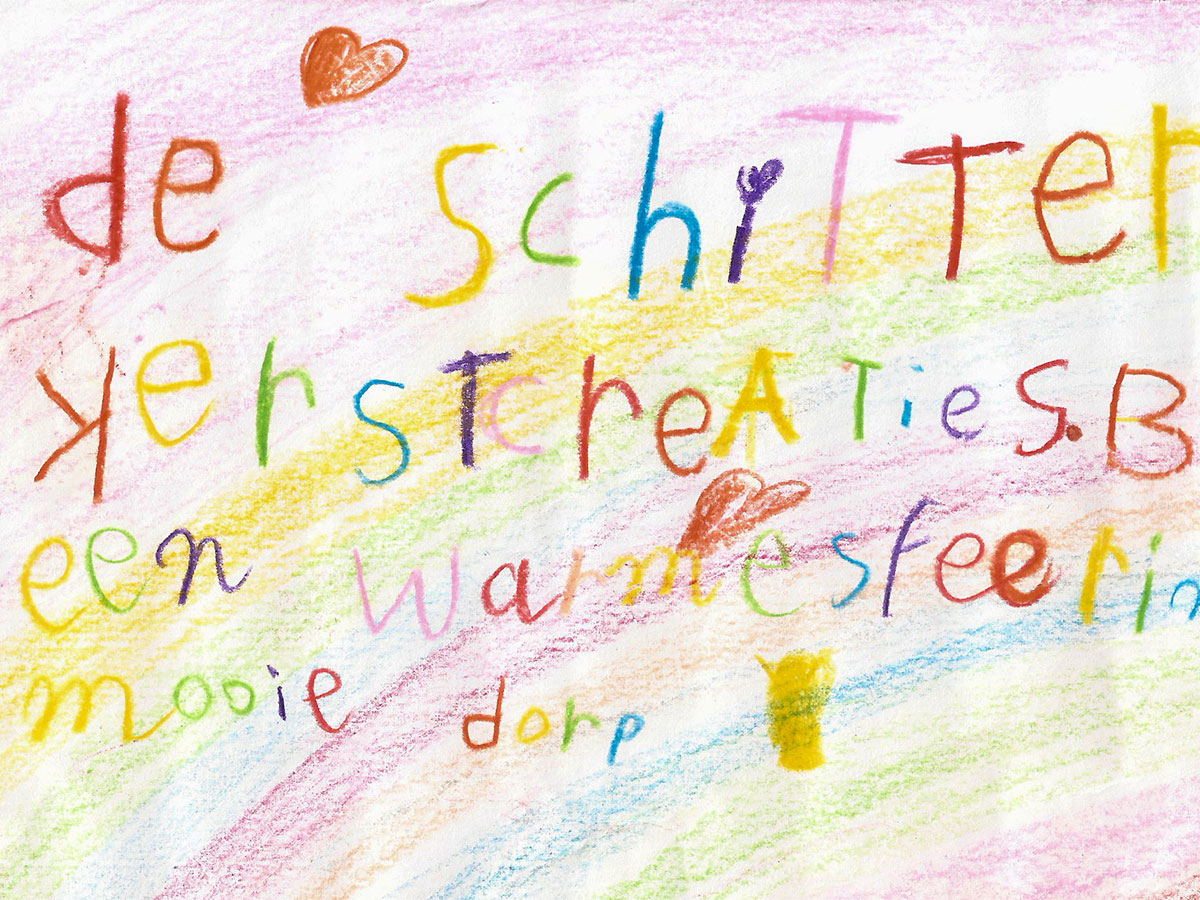 de schitter
kerstcreaties. B
een warme sfeer in
mooie dorp